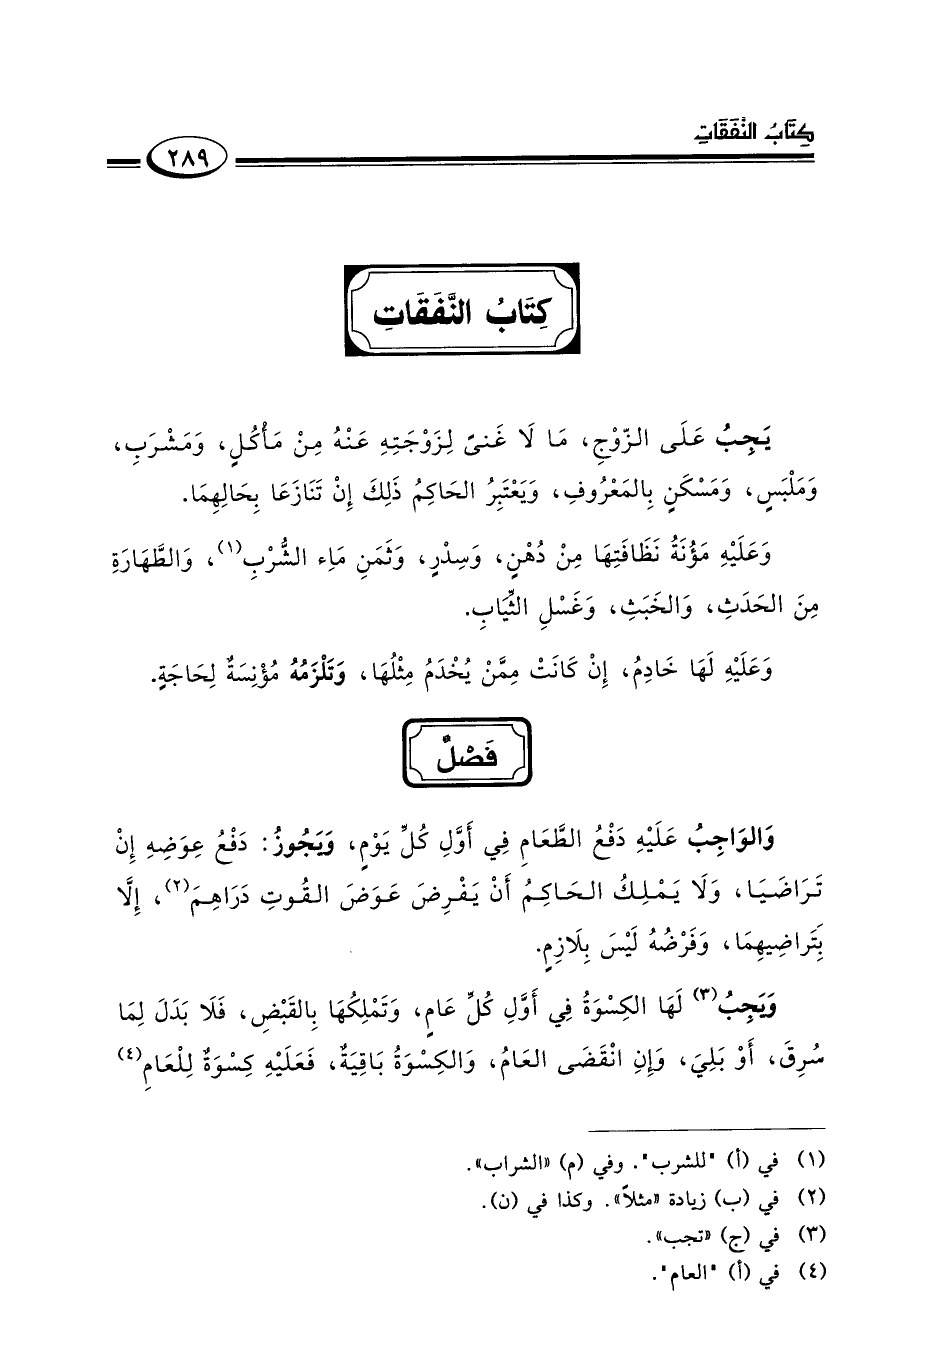 كِتَابُ النَّفَقَاتِ
٢٨٩
كِتَابُ النَّفَقَاتِ
يَجِبُ عَلَى الزَّوْجِ، مَا لَا غَنىً لِزَوْجَتِهِ عَنْهُ مِنْ مَأْكُلٍ، وَمَشْرَبٍ،
وَمَلْبَسٍ، وَمَسْكَنٍ بِالمَعْرُوفِ، وَيَعْتَبِرُ الحَاكِمُ ذَلِكَ إِنْ تَنَازَعَا بِحَالِهِمَا.
وَعَلَيْهِ مَؤُنَةُ نَظَافَتِهَا مِنْ دُهْنٍ، وَسِدْرٍ، وَثَمَنِ مَاءِ الشُّرْبِ(١)، وَالطَّهَارَةِ
مِنَ الحَدَثِ، وَالخَبَثِ، وَغَسْلِ الثِّيَابِ.
وَعَلَيْهِ لَهَا خَادِمُ، إِنْ كَانَتْ مِمَّنْ يُخْدَمُ مِثْلُهَا، وَتَلْزَمُهُ مُؤْنِسَةٌ لِحَاجَةٍ.
فَصْلٌ
وَالوَاجِبُ عَلَيْهِ دَفْعُ الطَّعَامِ فِي أَوَّلِ كُلِّ يَوْمٍ، وَيَجُوزُ: دَفْعُ عِوَضِهِ إِنْ
تَرَاضَيَا، وَلَا يَمْلِكُ الحَاكِمُ أَنْ يَفْرِضَ عَوَضَ القُوتِ دَرَاهِمَ(٢)، إِلَّا
بِتَراضِيهِمَا، وَفَرْضُهُ لَيْسَ بِلَازِمٍ.
وَيَجِبُ(٣) لَهَا الكِسْوَةُ فِي أَوَّلِ كُلِّ عَامٍ، وَتَمْلِكُهَا بِالقَبْضِ، فَلَا بَدَلَ لِمَا
سُرِقَ، أَوْ بَلِيَ، وَإِنِ انْقَضَى العَامُ، وَالكِسْوَةُ بَاقِيَةٌ، فَعَلَيْهِ كِسْوَةٌ لِلْعَامِ(٤)
(١) في (أ) "للشرب". وفي (م) «الشراب».
(٢) في (ب) زيادة «مثلاً». وكذا في (ن).
(٣) في (ج) «تجب».
(٤) في (أ) "العام".